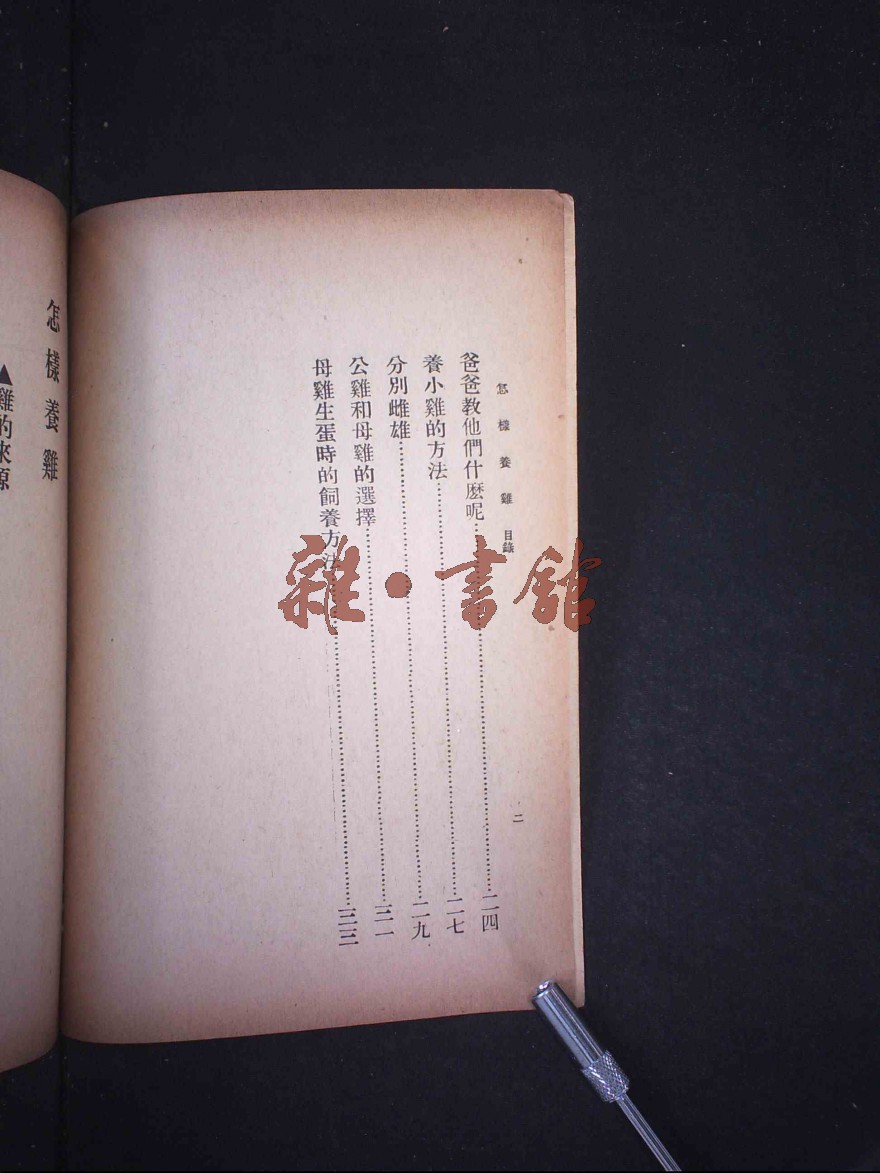 怎樣養雞 目錄
二
爸爸教他們什麽呢……二四
養小雞的方法……二七
分別雌雄……二九
公雞和母雞的選擇……三一
母雞生蛋時的飼養方法……三三
怎樣養雞
▲雞的來源
雜·書館